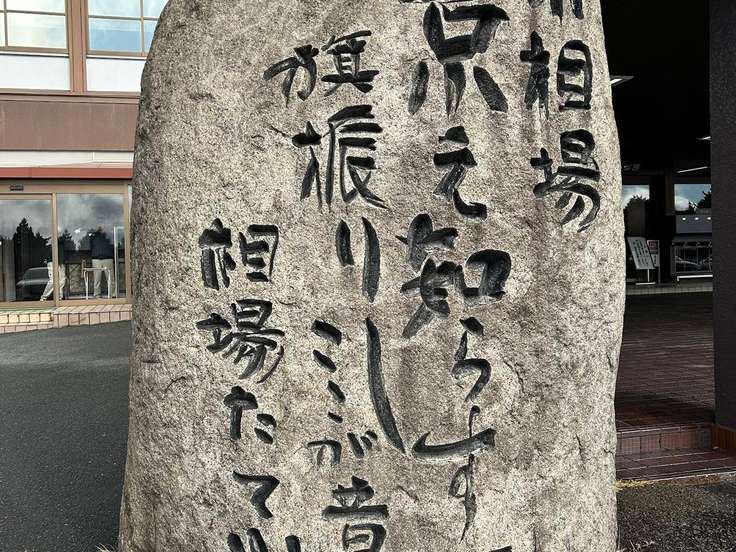 相場
え知らす
旗振りしここが昔
相場たて